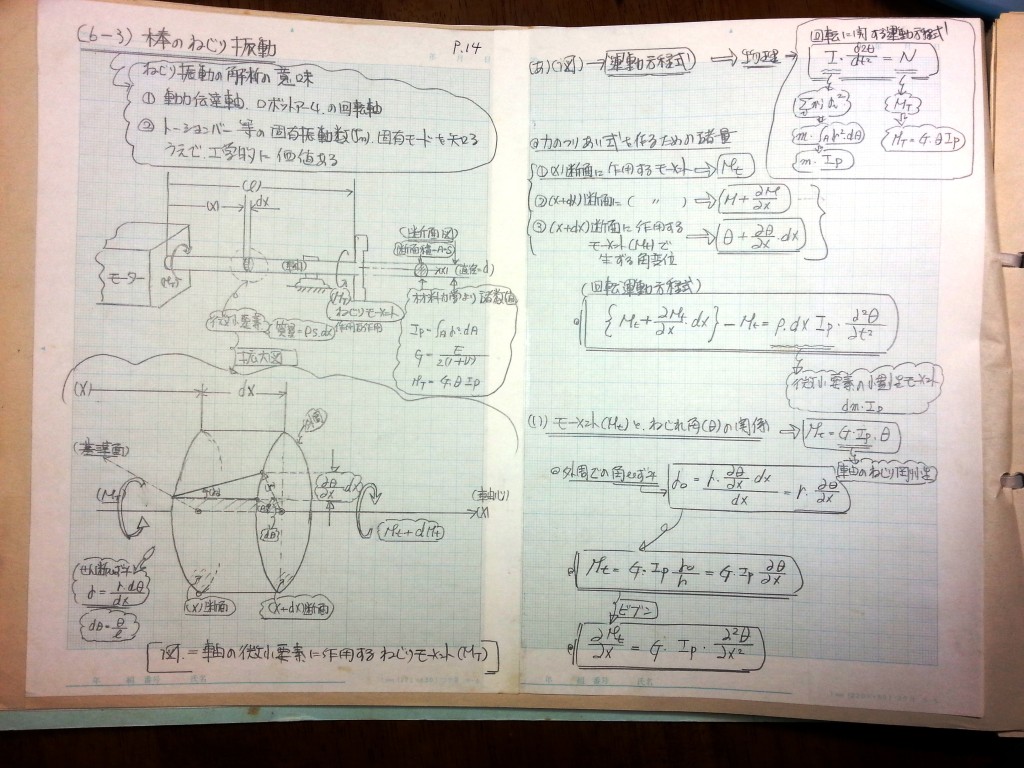 (6-3) 棒のねじり振動
P.14
ねじり振動の解析の意味
① 動力伝達軸、ロボットアームの回転軸
② トーションバー等の固有振動数(fn)、固有モードを知る
うえで、工学的に価値ある
(l)
(x) dx
モーター
(MT)
(断面図)
(直径=d)
(MT)
ねじりモーメント
微小要素
質量=ρs.dx
拡大図
材料力学より
Ip = ∫A r².dA
G = E/2(1+ν)
MT = G.θ Ip
(x) dx
外周
(基準面)
∂θ/∂x dx
(軸心)
(x)
Mt+dMt
せん断ひずみ
γ = r dθ/dx
dθ = θ/l
(x)断面
(x+dx)断面
図. = 軸の微小要素に作用するねじりモーメント(MT)
(あ)(図)→(運動方程式) ⇒ 物理
回転に関する運動方程式
I · d²θ/dt² = N
m·∫A r².dθ
m. Ip
MT
MT = G.θ Ip
◎力のつりあい式を作るための諸量
①(x)断面に作用するモーメント ⇒ Mt
②(x+dx)断面に( 〃 ) ⇒ M+∂M/∂x
③(x+dx)断面に作用する
モーメント(Mt)で ⇒ θ+∂θ/∂x.dx
生ずる角変位
(回転運動方程式)
{Mt+∂Mt/∂x.dx} - Mt = ρ.dx Ip · ∂²θ/∂t²
微小要素の
dm.Ip
(い) モーメント(Mt)と、ねじれ角(θ)の関係 → Mt = G.Ip.θ
軸のねじり剛性
◎外周での角ひずみ γo = r.∂θ/∂x dx/dx = r.∂θ/∂x
Mt = G.Ip γo/r = G.Ip ∂θ/∂x
ビブン
∂Mt/∂x = G. Ip · ∂²θ/∂x²